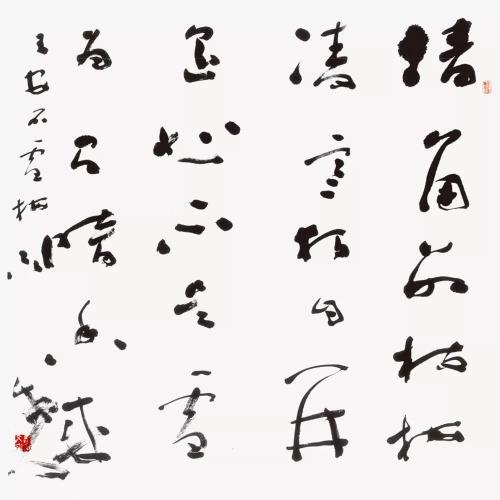 墙角数枝梅
凌寒独自开
遥知不是雪
为有暗香来
王安石雪梅